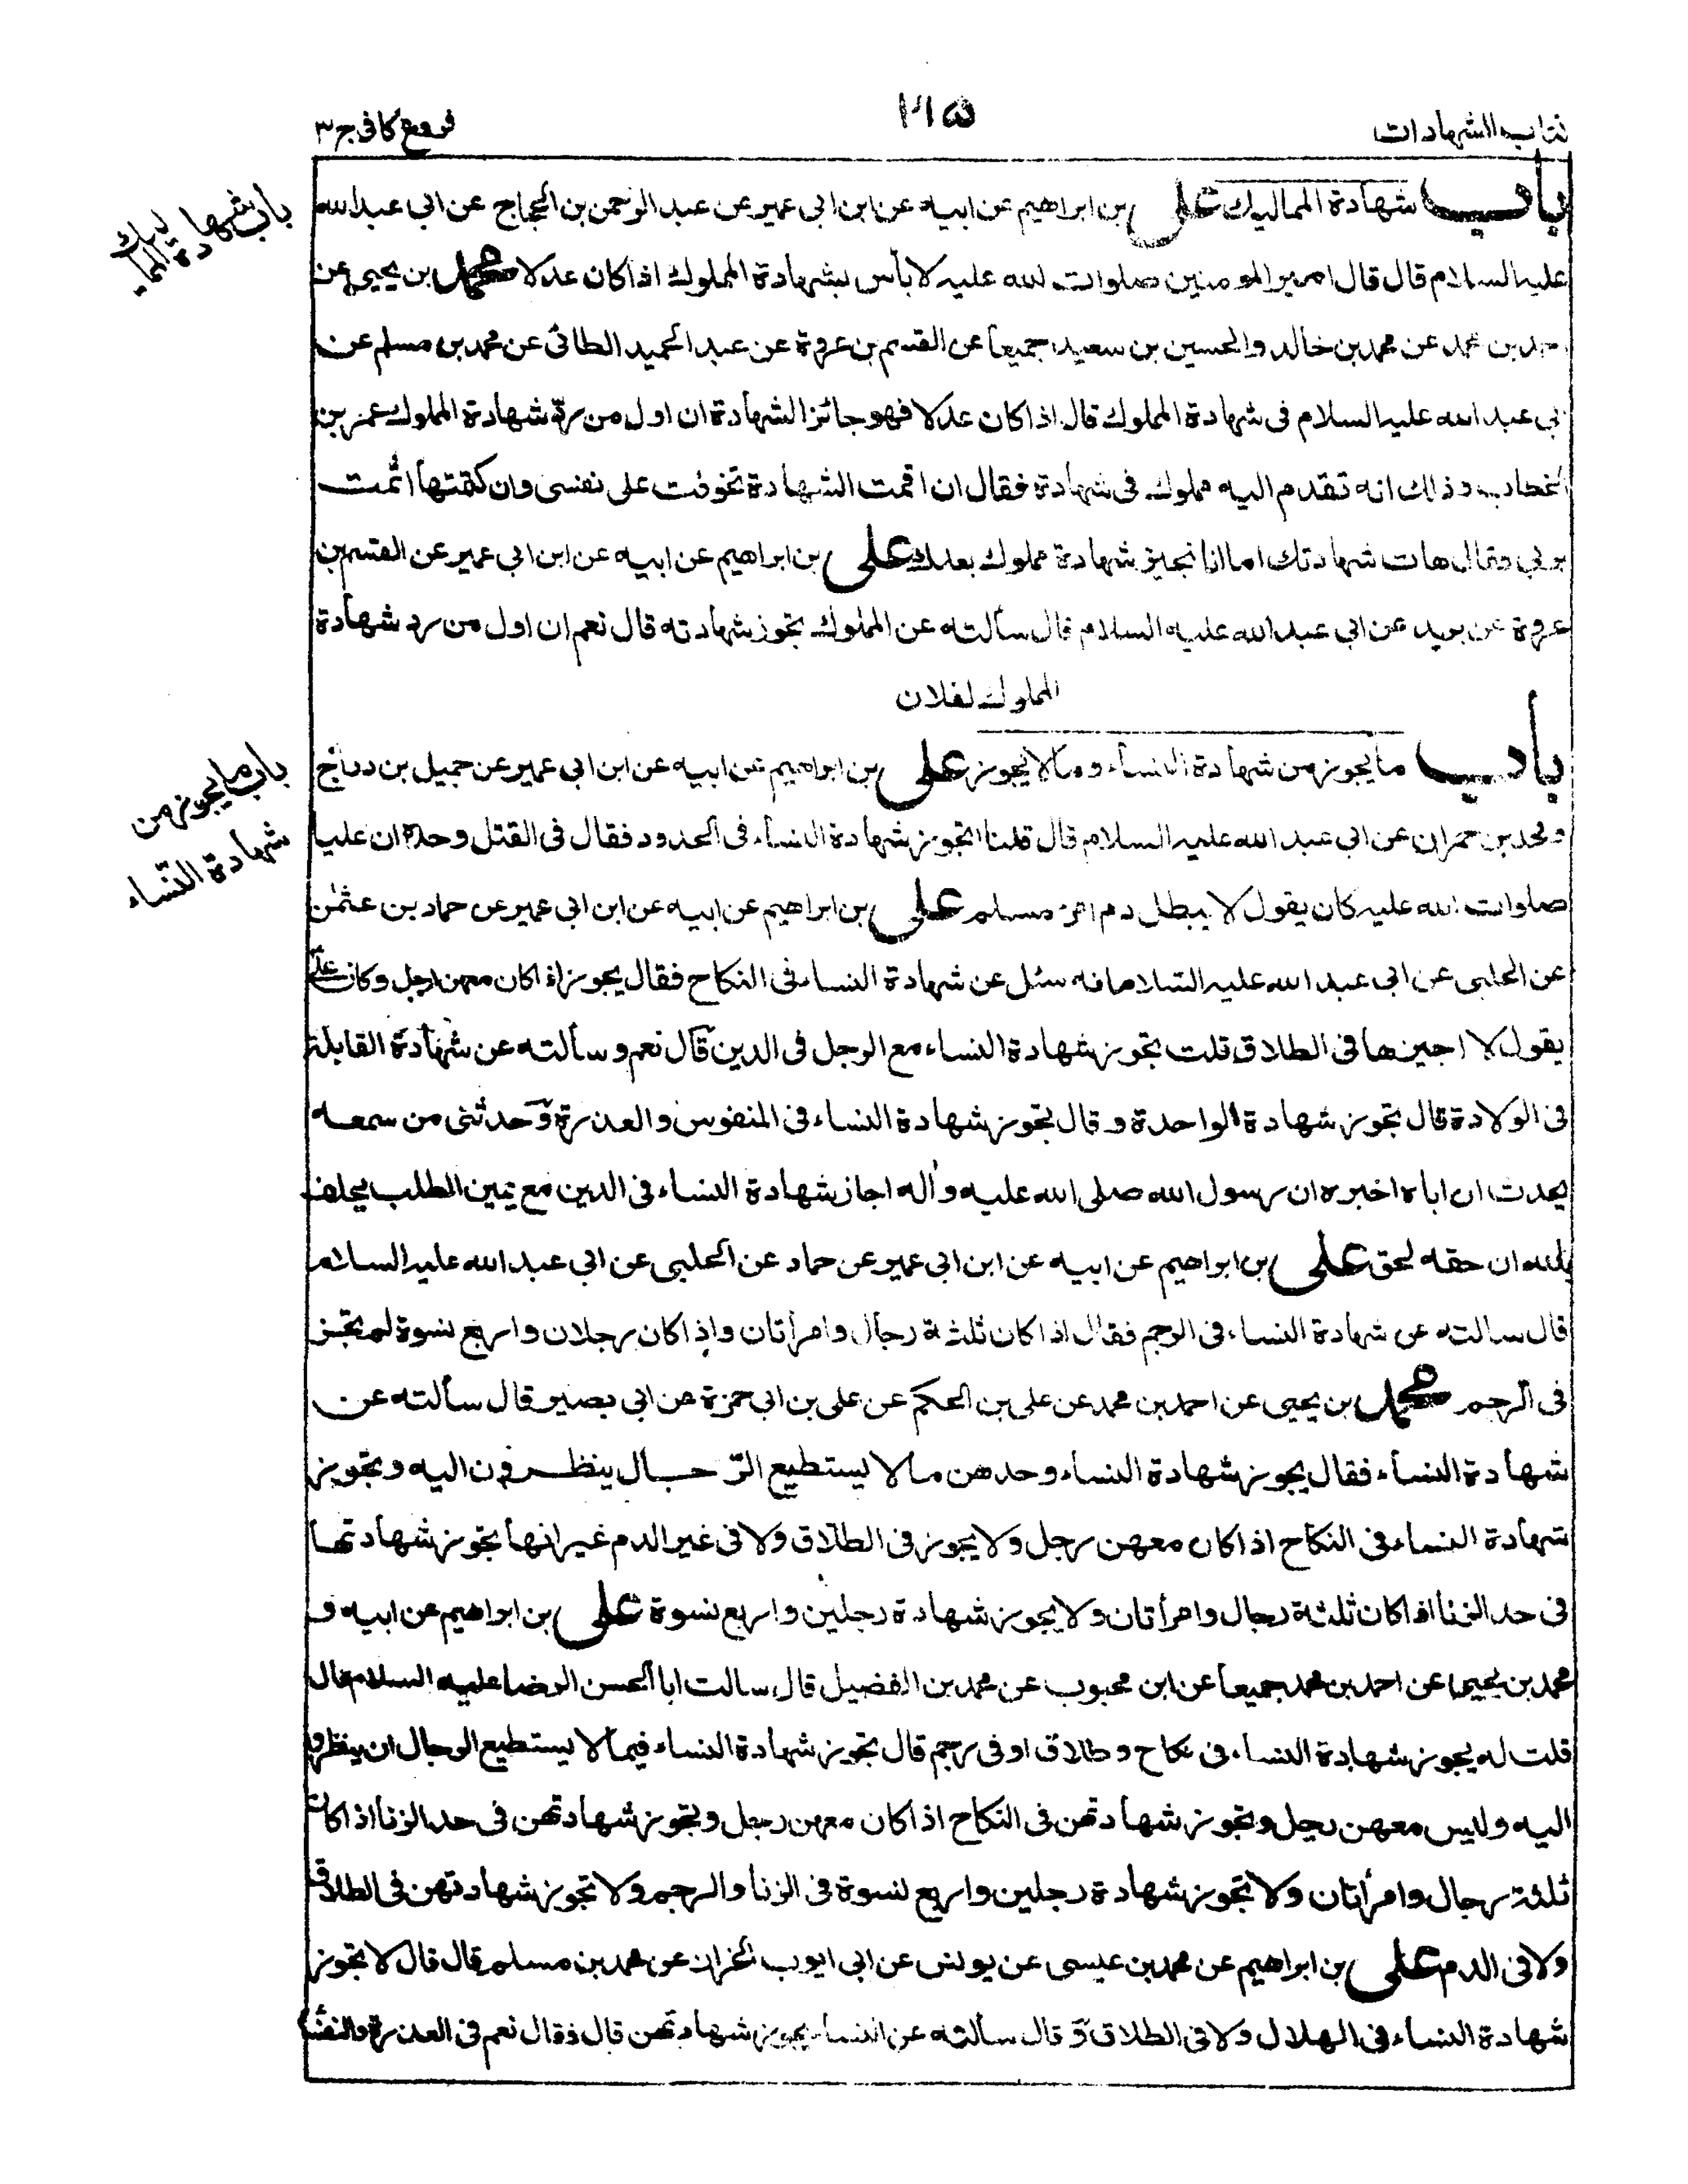 كتاب الشهادات
٢١٥
فروع كافى ج ٣
باب شهادة المماليك على بن ابراهيم عن ابيه عن ابن ابى عمير عن عبد الرحمن بن الحجاج عن ابى عبد الله
باب شهادة المماليك
عليه السلام قال قال امير المومنين صلوات الله عليه لا بأس بشهادة المملوك اذا كان عدلا محمد بن يحيى عن
احمد بن محمد عن محمد بن خالد والحسين بن سعيد جميعا عن القسم بن عروة عن عبد الحميد الطائى عن محمد بن مسلم عن
ابى عبد الله عليه السلام فى شهادة المملوك قال اذا كان عدلا فهو جائز الشهادة ان اول من ردّ شهادة المملوك عمر بن
الخطاب وذلك انه تقدم اليه مملوك فى شهادة فقال ان اقمت الشهادة تخوفت على نفسى وان كتمتها اثمت
بربى فقال هات شهادتك اما انا نجيز شهادة مملوك بعدك على بن ابراهيم عن ابيه عن ابن ابى عمير عن القسم بن
عروة عن بريد عن ابى عبد الله عليه السلام قال سألته عن المملوك تجوز شهادته قال نعم ان اول من رد شهادة
المملوك لفلان
باب ما يجوز من شهادة النساء وما لا يجوز على بن ابراهيم عن ابيه عن ابن ابى عمير عن جميل بن دراج
باب ما يجوز من
شهادة النّساء
ومحمد بن حمران عن ابى عبد الله عليه السلام قال قلنا اتجوز شهادة النساء فى الحدود فقال فى القتل وحده ان عليا
صلوات الله عليه كان يقول لا يبطل دم امرء مسلم على بن ابراهيم عن ابيه عن ابن ابى عمير عن حماد بن عثمن
عن الحلبى عن ابى عبد الله عليه السلام انه سئل عن شهادة النساء فى النكاح فقال يجوز اذا كان معهن رجل وكان علىّ
يقول لا اجيزها فى الطلاق قلت تجوز شهادة النساء مع الرجل فى الدين قال نعم وسألته عن شهادة القابلة
فى الولادة قال تجوز شهادة الواحدة وقال تجوز شهادة النساء فى المنفوس والعذرة وحدثنى من سمعه
يحدث ان اباه اخبره ان رسول الله صلى الله عليه وآله اجاز شهادة النساء فى الدين مع يمين الطلب يحلف
بالله ان حقه لحق على بن ابراهيم عن ابيه عن ابن ابى عمير عن حماد عن الحلبى عن ابى عبد الله عليه السلام
قال سالته عن شهادة النساء فى الرجم فقال اذا كان ثلثة رجال وامرأتان واذا كان رجلان واربع نسوة لم تجز
فى الرجم محمد بن يحيى عن احمد بن محمد عن على بن الحكم عن على بن ابى حمزة عن ابى بصير قال سألته عن
شهادة النساء فقال يجوز شهادة النساء وحدهن ما لا يستطيع الرّجال ينظرون اليه وتجوز
شهادة النساء فى النكاح اذا كان معهن رجل ولا يجوز فى الطلاق ولا فى غير الدم غير انها تجوز شهادتها
فى حد الزنا اذا كان ثلثة رجال وامرأتان ولا يجوز شهادة رجلين واربع نسوة على بن ابراهيم عن ابيه و
محمد بن يحيى عن احمد بن محمد جميعا عن ابن محبوب عن محمد بن الفضيل قال سالت ابا الحسن الرضا عليه السلام قال
قلت له يجوز شهادة النساء فى نكاح وطلاق او فى رجم قال تجوز شهادة النساء فيما لا يستطيع الرجال ان ينظروا
اليه وليس معهن رجل وتجوز شهادتهن فى النكاح اذا كان معهن رجل وتجوز شهادتهن فى حد الزنا اذا كان
ثلثة رجال وامرأتان ولا تجوز شهادة رجلين واربع نسوة فى الزنا والرجم ولا تجوز شهادتهن فى الطلاق
ولا فى الدم على بن ابراهيم عن محمد بن عيسى عن يونس عن ابى ايوب الخزاز عن محمد بن مسلم قال قال لا تجوز
شهادة النساء فى الهلال ولا فى الطلاق وقال سألته عن النساء يجوز شهادتهن قال فقال نعم فى العذرة والنفساء